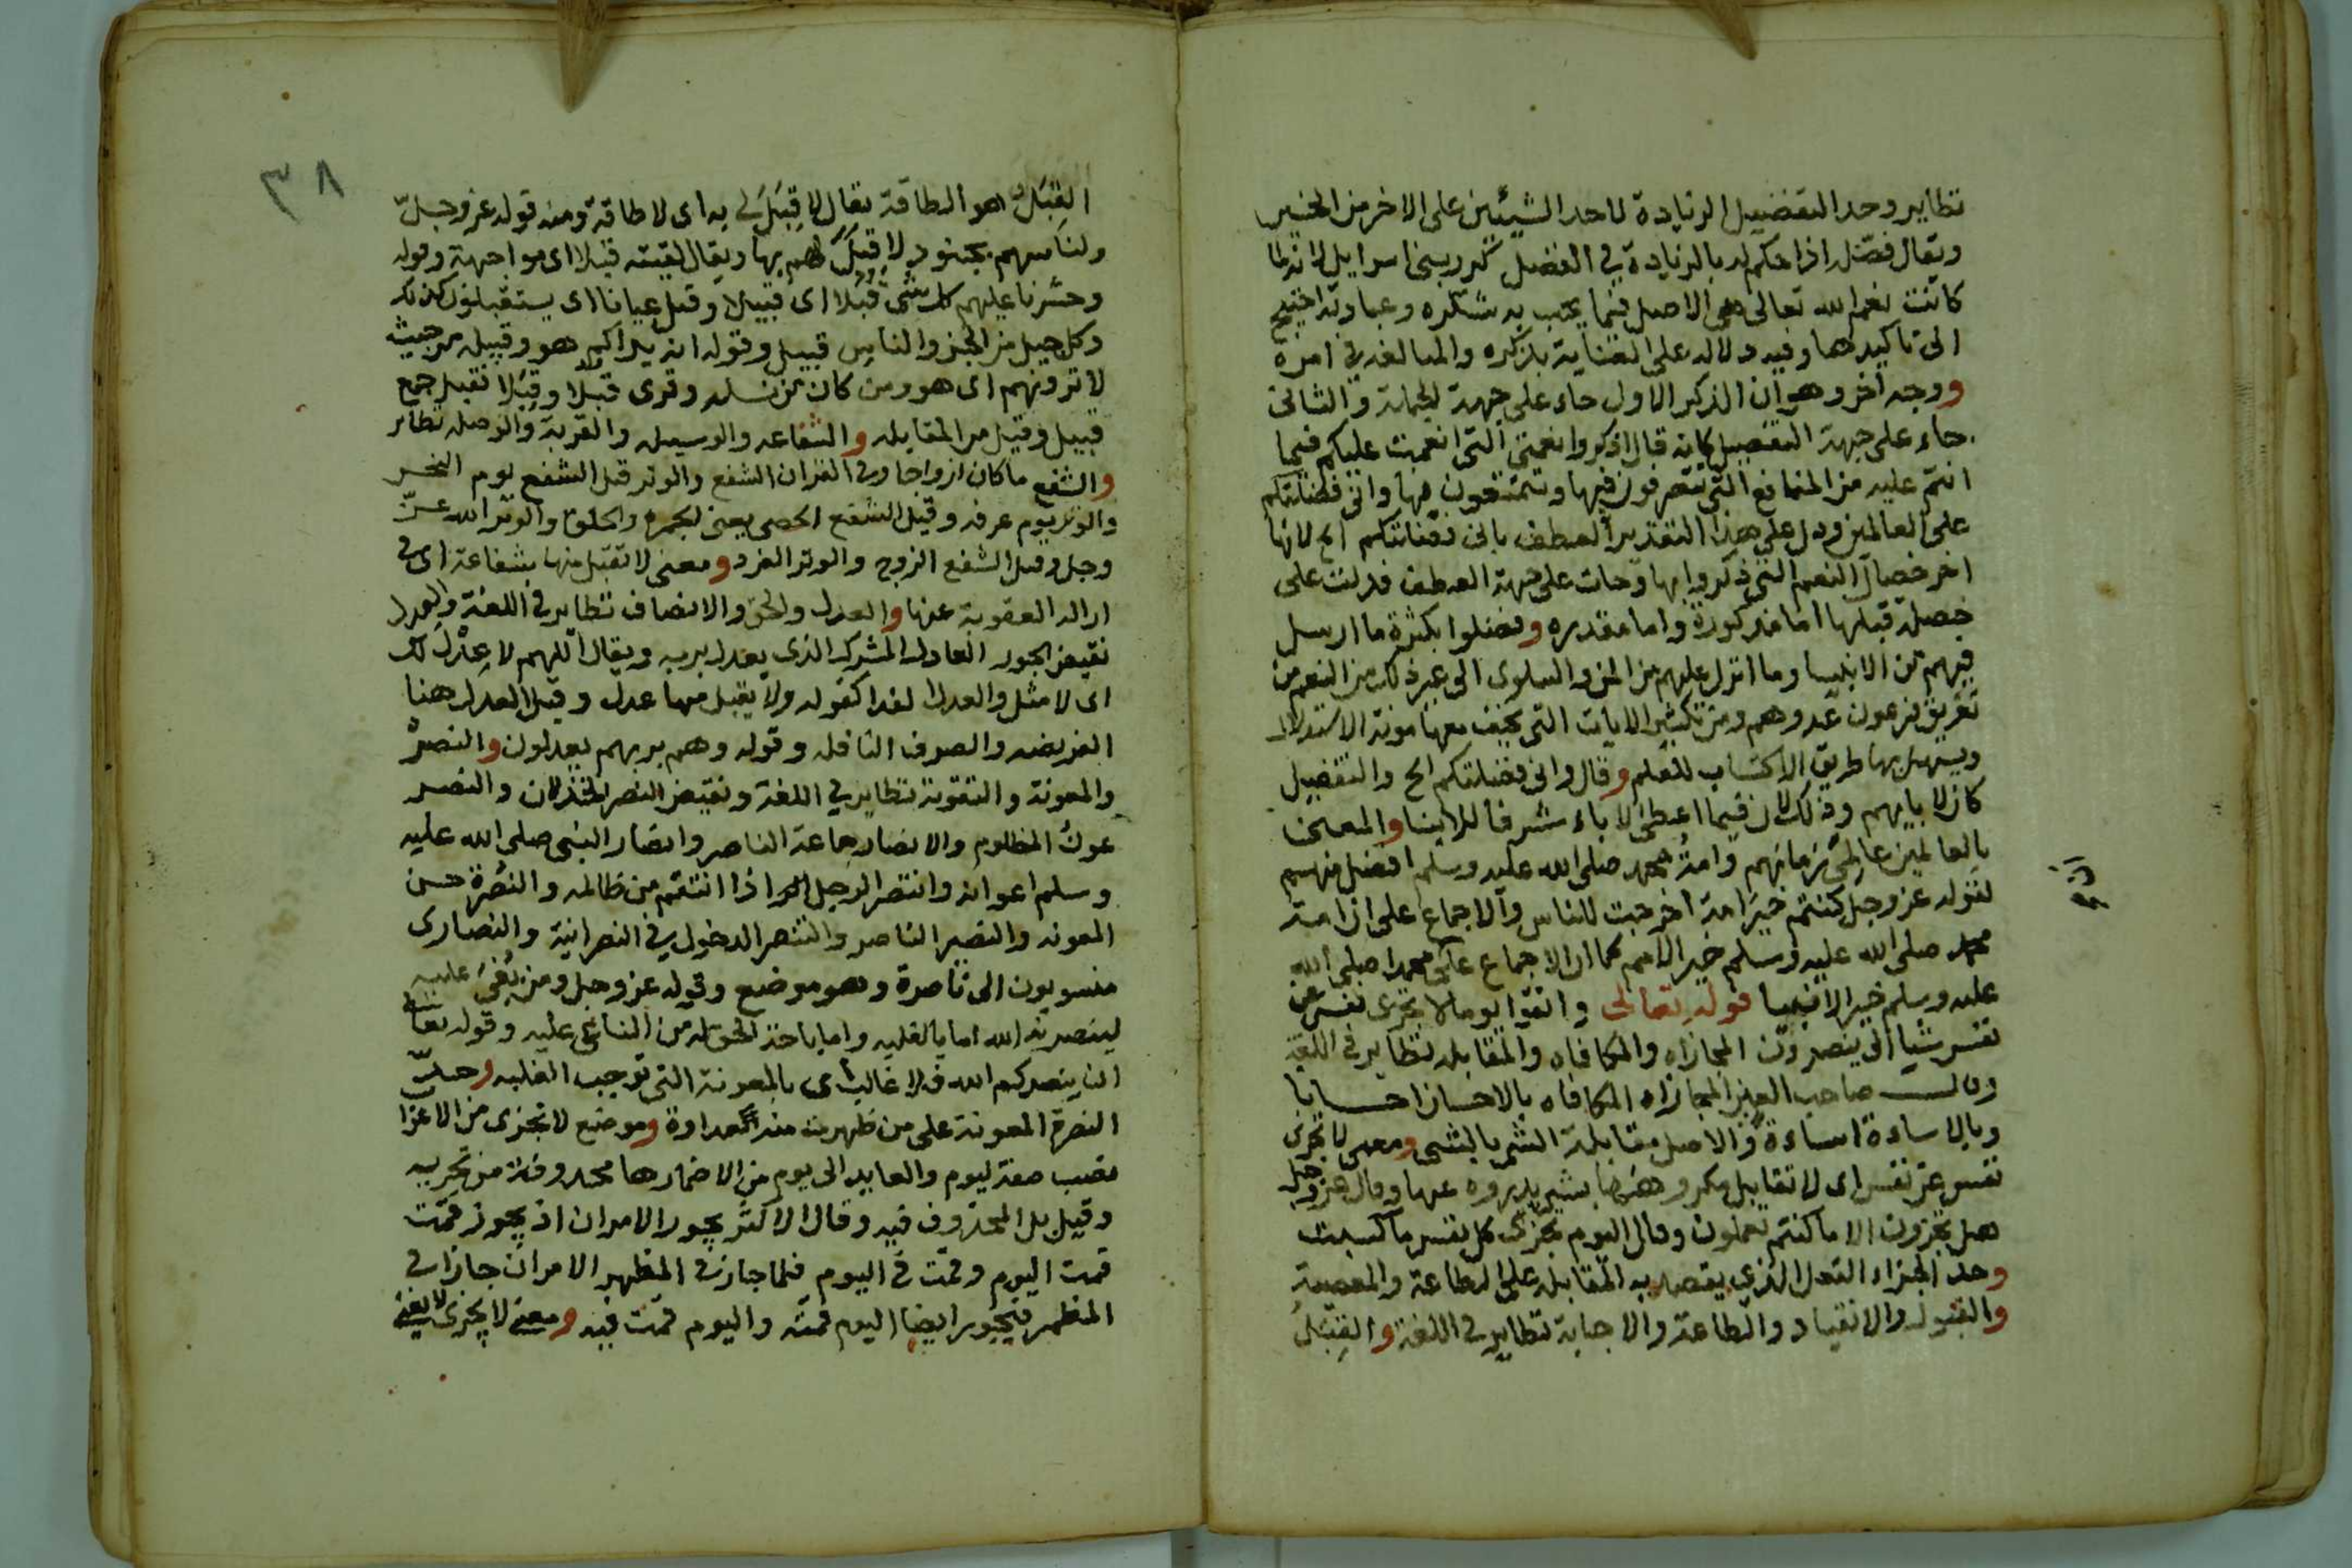 نظاير وحد التفضيل الزيادة لاحد الشيئين على الاخر من الخير
ويقال فضّل اذا حكم له بالزيادة في الفضل كرر بني اسرايل لانه لما
كانت نعم الله تعالى هى الاصل فيما يجب به شكره وعبادته احتيج
الى تاكيدها وفيه دلاله على العناية بذكره والمبالغة في امره
ووجه اخر وهو ان الذكر الاول جاء على جهة الجملة والثانى
جاء على جهة التفصيل كانه قال اذكروا نعمتى التى انعمت عليكم فيما
انتم عليه من المنافع التى تتصرفون فيها وتتمتعون بها وانى فضلتكم
على العالمين ودل على هذا التقدير العطف بانى فضلتكم الخ لانها
اخر خصال النعم التى ذكروا بها وجات على جهة العطف فدلت على
خصلة قبلها اما مذكورة واما مقدره وفضلوا بكثرة ما ارسل
فيهم من الانبيا وما انزل عليهم من المن والسلوى الى غير ذلك من النعم من
تغريق فرعون عدوهم ومن تكثير الايات التى يخف معها مونة الاستدلال
ويسهل بها طريق الاكتساب للعلم وقال وانى فضلتكم الخ والتفضيل
كان لابايهم وذلك لان فيما اعطى الاباء شرفا للابنا والمعنى
بالعالمين عالمى زمانهم وامة محمد صلى الله عليه وسلم افضل منهم
لقوله عز وجل كنتم خير امة اخرجت للناس والاجماع على ان امة
محمد صلى الله عليه وسلم خير الامم كما ان الاجماع على محمدا صلى الله
عليه وسلم خير الانبيا قوله تعالى واتقوا يوما لا تجزى نفس عن
نفس شيا الى ينصرون المجازاه والمكافاه والمقابله نظاير في اللغة
وقال صاحب العين المجازاه المكافاه بالاحسان احسانا
وبالاساءة اساءة والاصل مقابلة الشى بالشى ومعنى لا تجزى
نفس عن نفس اى لا تقابل مكروهها بشى يدروه عنها وقال عز وجل
هل تجزون الا ما كنتم تعملون وقال اليوم تجزى كل نفس ما كسبت
وحد الجزاء الفعل الذى يقصد به المقابله على الطاعة والمعصية
والقبول والانقياد والطاعة والاجابة نظاير في اللغة والقِبَلُ
٣٨
القِبَلُ هو الطاقة يقال لا قِبَلَ لى به اى لا طاقة ومنه قوله عز وجل
ولناتينهم بجنود لا قبل لهم بها ويقال لقيته قبلا اى مواجهة وقوله
وحشرنا عليهم كل شى قُبُلا اى قبيلا وقيل عيانا اى يستقبلون كذلك
وكل جيل من الجن والناس قبيل وقوله انه يراكم هو وقبيله من حيث
لا ترونهم اى هو ومن كان من نسله وقرى قبلا وقِبَلا فقبل جمع
قبيل وقيل من المقابله والشفاعه والوسيله والقربة والوصله نظاير
والشفع ما كان ازواجا وفى القران الشفع والوتر قيل الشفع يوم النحر
والوتر يوم عرفه وقيل الشفع الحصى يعنى الجمره والخلق والوتر الله عز
وجل وقيل الشفع الزوج والوتر الفرد ومعنى لا تقبل منها شفاعة اى فى
ازاله العقوبة عنها والعدل والحق والانصاف نظاير في اللغة والعدل
نقيض الجور العادل المشرك الذى يعدل بربه ويقال اللهم لا عِدْل لك
اى لا مثل والعدل الفدا كقوله ولا يقبل منها عدل وقيل العدل هنا
الفريضه والصرف النافله وقوله وهم بربهم يعدلون والنصر
والمعونة والتقوية نظاير في اللغة ونقيض النصر الخذلان والنصر
عون المظلوم والانصار جماعة الناصر وانصار النبى صلى الله عليه
وسلم اعوانه وانتصر الرجل اذا انتقم من ظالمه والنُصْرة حسن
المعونه والنصير الناصر والتنصر الدخول في النصرانية والنصارى
منسوبون الى ناصرة وهو موضع وقوله عز وجل ومن بُغى عليه
لينصرنه الله اما بالغلبه واما باخذ الحق له من الباغى عليه وقوله تعالى
ان ينصركم الله فلا غالب اى بالمعونة التى توجب الغلبه وحد
النصرة المعونة على من ظهرت منه العداوة وموضع لا تجزى من الاعراب
نصب صفة ليوم والعايد الى يوم من الاضمار ها محذوفة من تجزيه
وقيل بل المحذوف فيه وقال الاكثر يجوز الامران اذ يجوز قمت
قمت اليوم وقمت فى اليوم فلما جاز فى المظهر الامران جازا فى
المظمر فيجوز ايضا اليوم قمته واليوم قمت فيه ومعنى لا يجزى لا يغنى